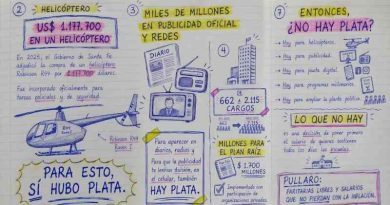 2 HELICÓPTERO
US$ 1.177.700
EN UN HELICÓPTERO
En 2025, el Gobierno de Santa Fe
adjudicó la compra de un helicóptero
Robinson R44 por 1.177.700 dólares.
Fue incorporado oficialmente para
tareas policiales y de seguridad.
Robinson R44
Raven I
PARA ESTO,
SÍ HUBO PLATA.
3 MILES DE MILLONES
EN PUBLICIDAD OFICIAL
Y REDES
DIARIO
Para aparecer en
diarios, radios y
Para que la publicidad
en el celular, también
HAY PLATA.
4
662 a 2.115
CARGOS
MILLONES PARA
EL PLAN RAÍZ
$ 1.700
MILLONES
Implementado con
participación de
organizaciones privadas.
7 ENTONCES,
¿NO HAY PLATA?
Hay para helicópteros.
Hay para publicidad.
Hay para pauta digital.
Hay para programas millonarios.
Hay para ampliar la planta política.
LO QUE NO HAY
es una decisión de poner primero
el salario de quienes sostienen
todos los días las escuelas.
PULLARO:
PARITARIAS LIBRES Y SALARIOS
QUE NO PIERDAN CON LA INFLACIÓN.